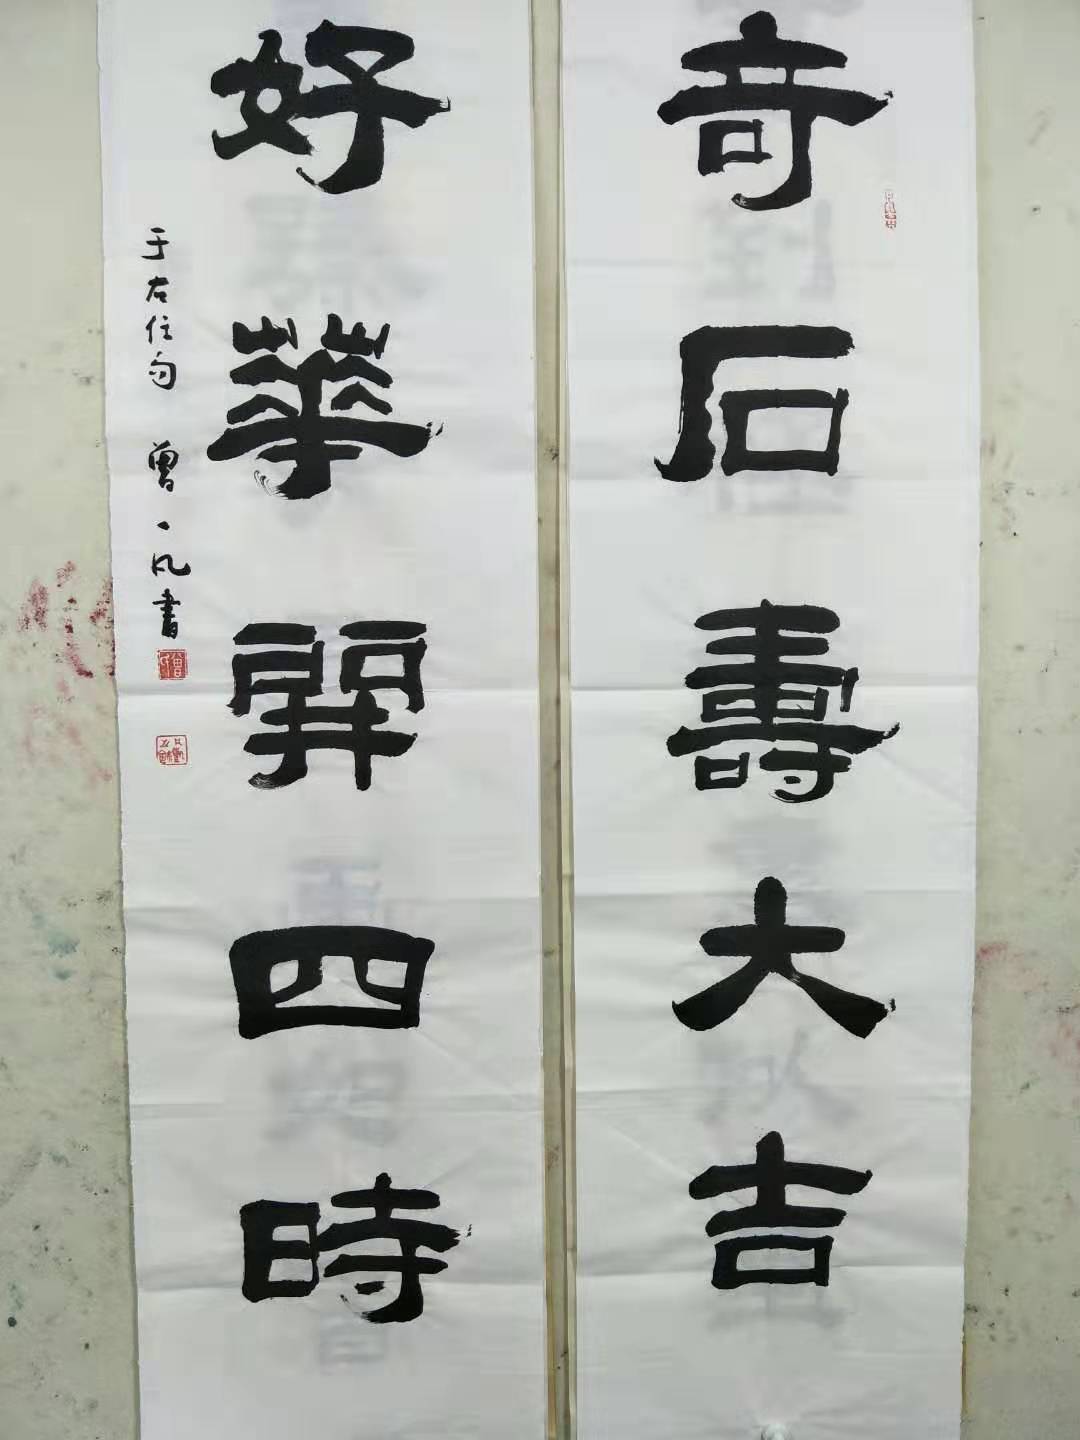 奇石壽大吉
好華開四時
于右任句 曾一凡書